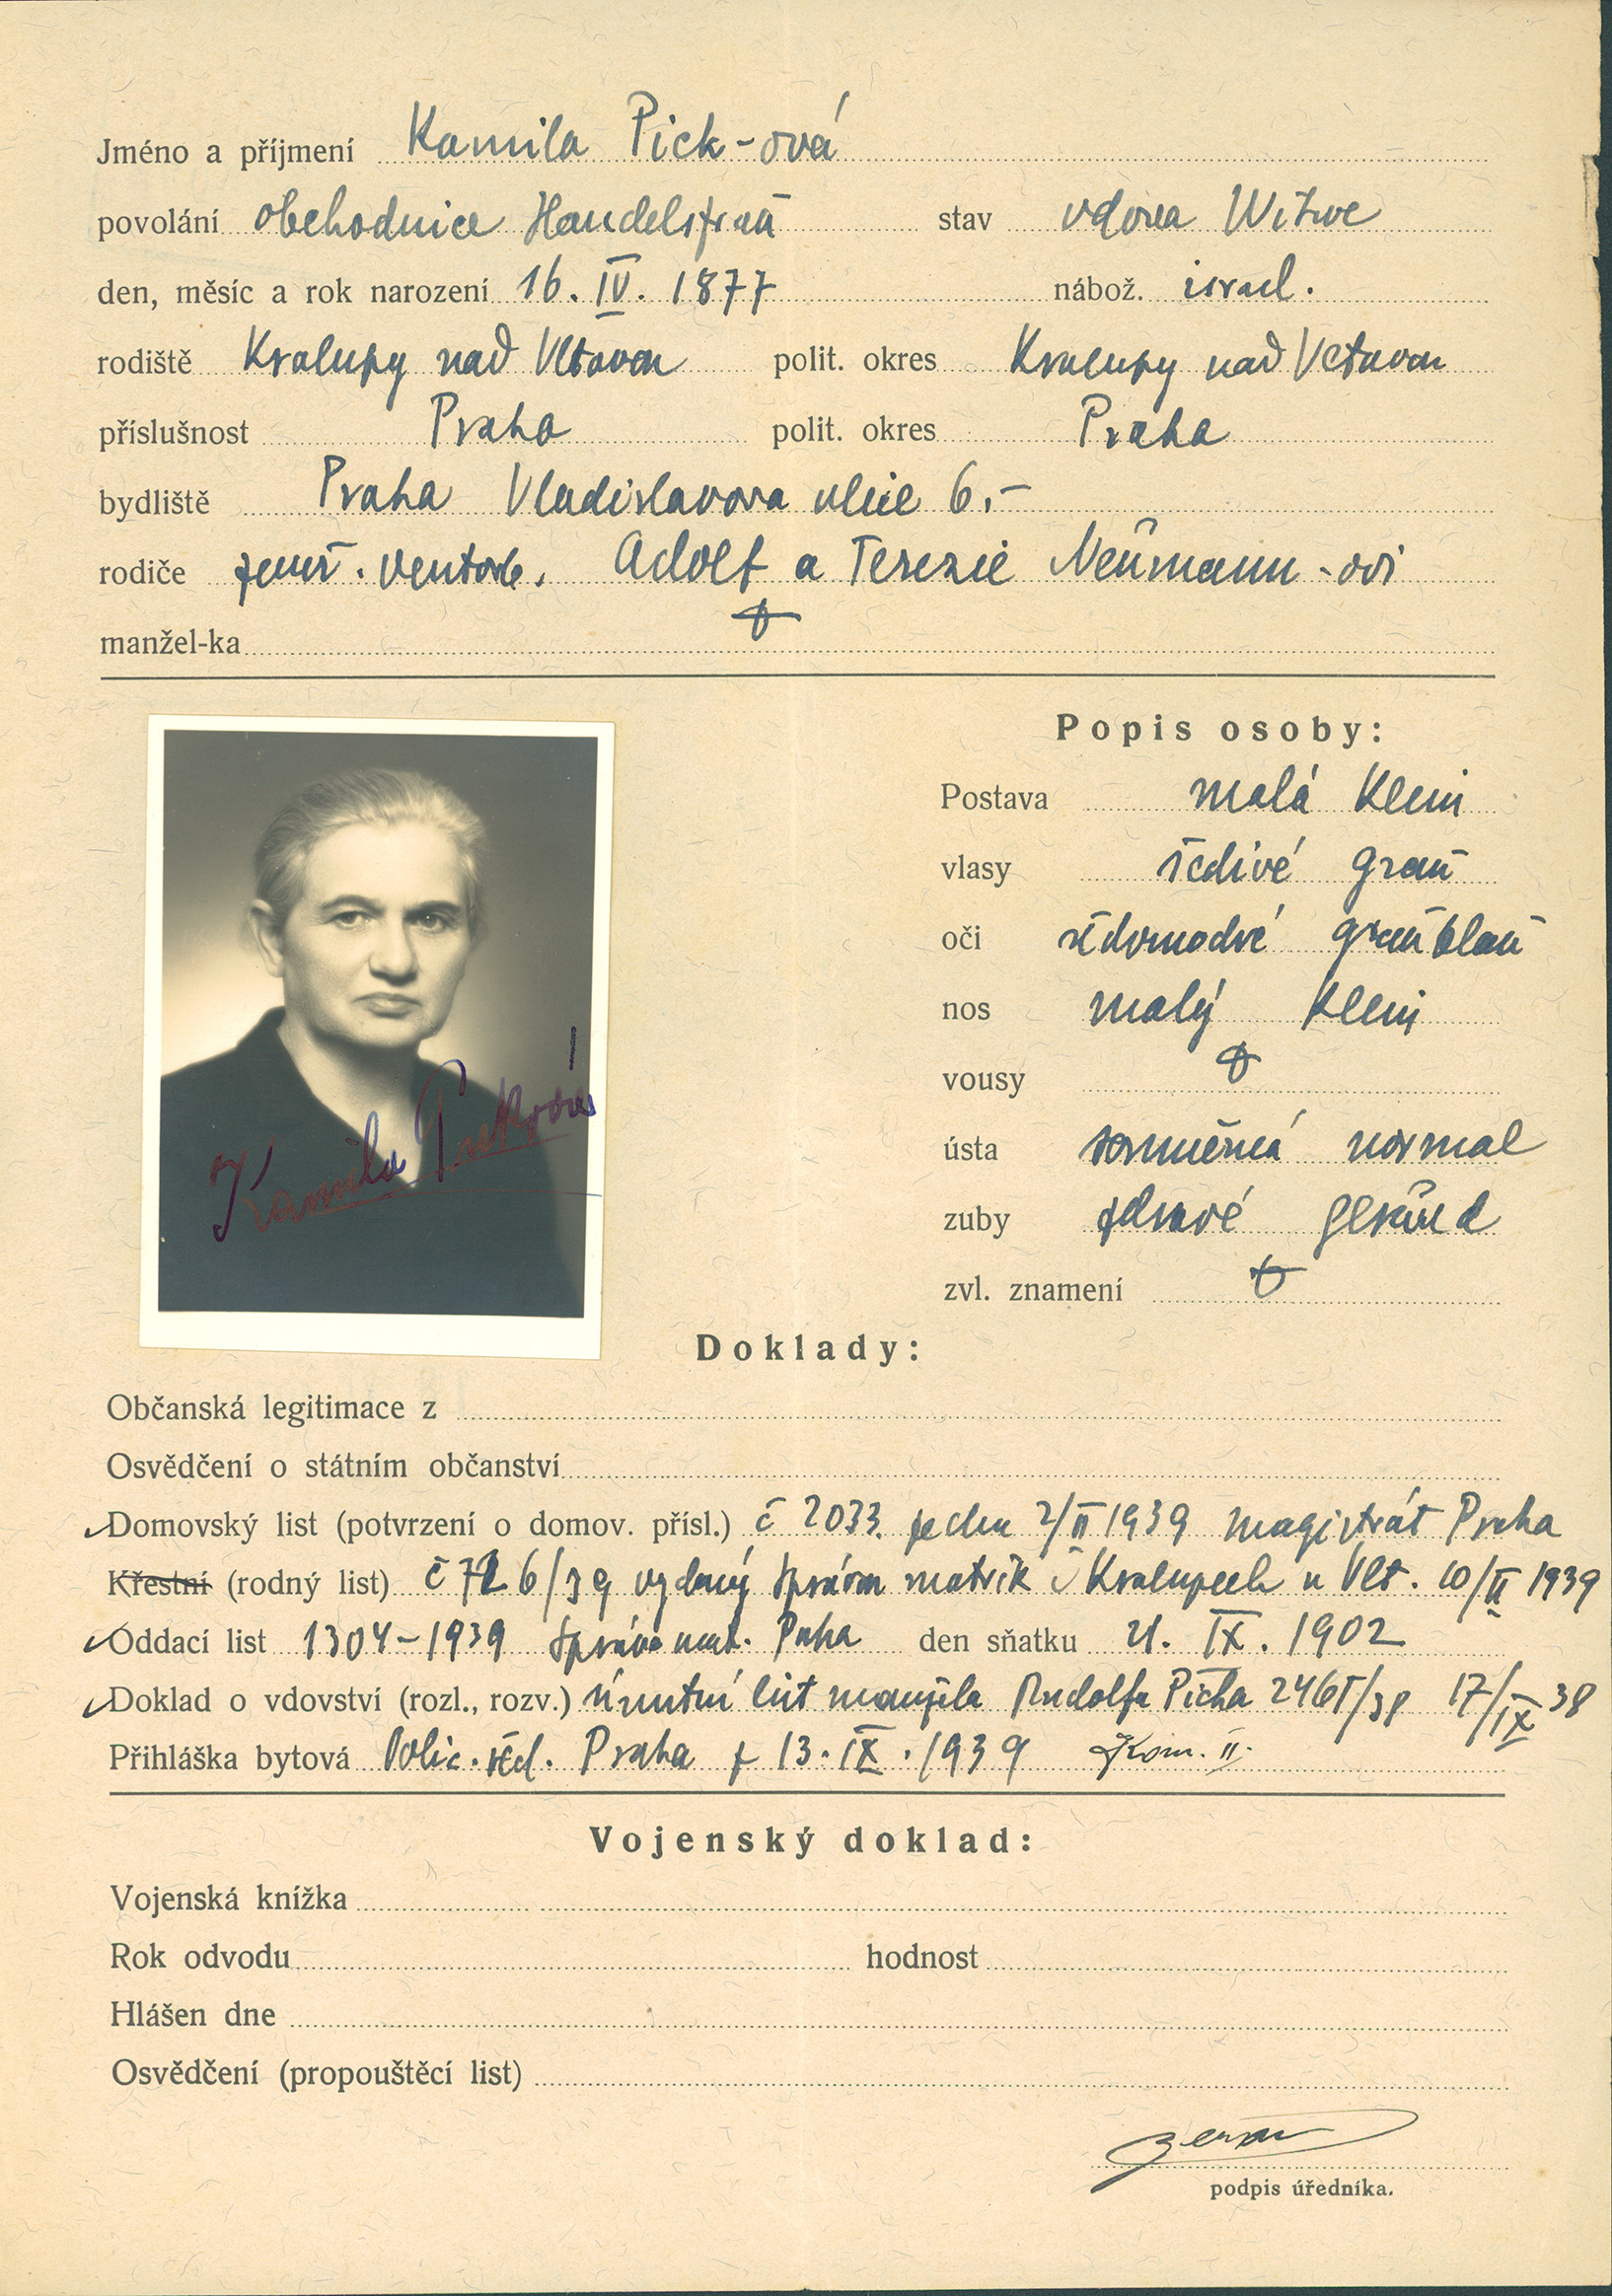 Jméno a příjmení Kamila Pick-ová
povolání obchodnice Handelsfrau stav vdova Witwe
den, měsíc a rok narození 16. IV. 1877 nábož. israel.
rodiště Kralupy nad Vltavou polit. okres Kralupy nad Vltavou
příslušnost Praha polit. okres Praha
bydliště Praha Vladislavova ulice 6.-
rodiče Adolf a Terezie Neumann-ovi
manžel-ka
Popis osoby:
Postava malá klein
vlasy šedivé grau
oči šedomodré graublau
nos malý klein
vousy
ústa souměrná normal
zuby zdravé gesund
zvl. znamení
Kamila Picková
Doklady:
Občanská legitimace z
Osvědčení o státním občanství
Domovský list (potvrzení o domov. přísl.) č 2033 ze dne 2/II 1939 magistrát Praha
Křestní (rodný list) č 726/39 vydaný správou matrik v Kralupech n Vlt. 10/II 1939
Oddací list 1304-1939 Správa mat. Praha den sňatku 21. IX. 1902
Doklad o vdovství (rozl., rozv.) úmrtní list manžela Rudolfa Picka 17/IX 38
Přihláška bytová Polic. řed. Praha z 13. IX. 1939 Kom. II.
Vojenský doklad:
Vojenská knížka
Rok odvodu hodnost
Hlášen dne
Osvědčení (propouštěcí list)
podpis úředníka.